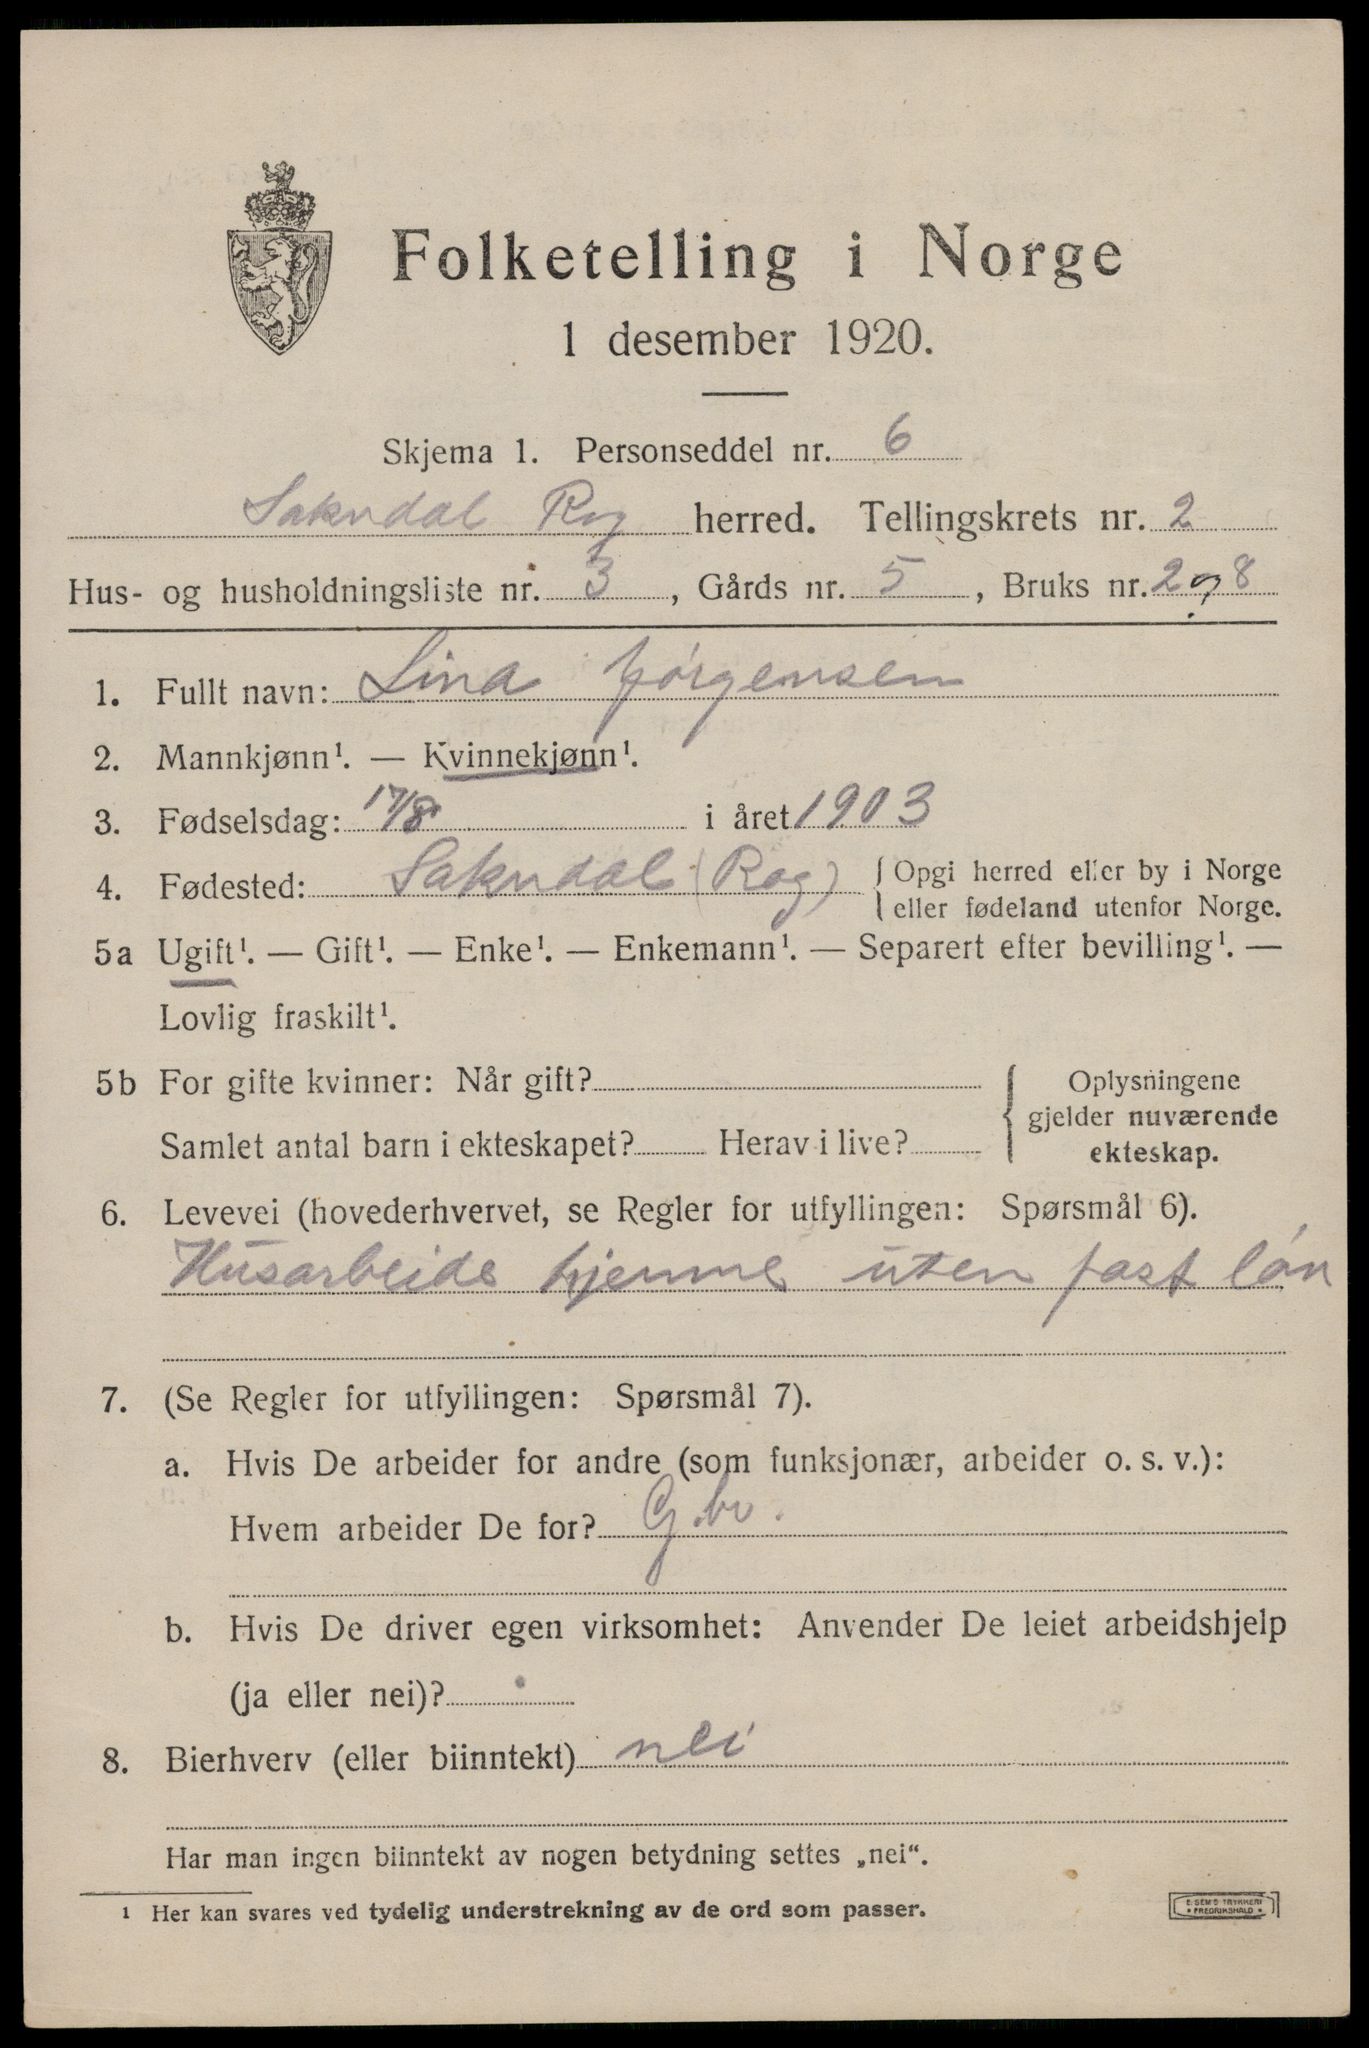 Folketelling i Norge
1 desember 1920.
Skjema 1. Personseddel nr. 6
Sakndal Rog herred. Tellingskrets nr. 2
Hus- og husholdningsliste nr. 3, Gårds nr. 5, Bruks nr. 2 og 8
1. Fullt navn: Lina Jørgensen
2. Mannkjønn¹. — Kvinnekjønn¹.
3. Fødselsdag: 17/8 i året 1903
4. Fødested: Sakndal (Rog) { Opgi herred eller by i Norge
eller fødeland utenfor Norge.
5a Ugift¹. — Gift¹. — Enke¹. — Enkemann¹. — Separert efter bevilling¹. —
Lovlig fraskilt¹.
5b For gifte kvinner: Når gift? { Oplysningene
gjelder nuværende
Samlet antal barn i ekteskapet? Herav i live? ekteskap.
6. Levevei (hovederhvervet, se Regler for utfyllingen: Spørsmål 6).
Husarbeide hjemme uten fast løn
7. (Se Regler for utfyllingen: Spørsmål 7).
a. Hvis De arbeider for andre (som funksjonær, arbeider o. s. v.):
Hvem arbeider De for? G.br.
b. Hvis De driver egen virksomhet: Anvender De leiet arbeidshjelp
(ja eller nei)?
8. Bierhverv (eller biinntekt) nei
Har man ingen biinntekt av nogen betydning settes „nei“.
¹ Her kan svares ved tydelig understrekning av de ord som passer.
E. SEM'S TRYKKERI
• FREDRIKSHALD •